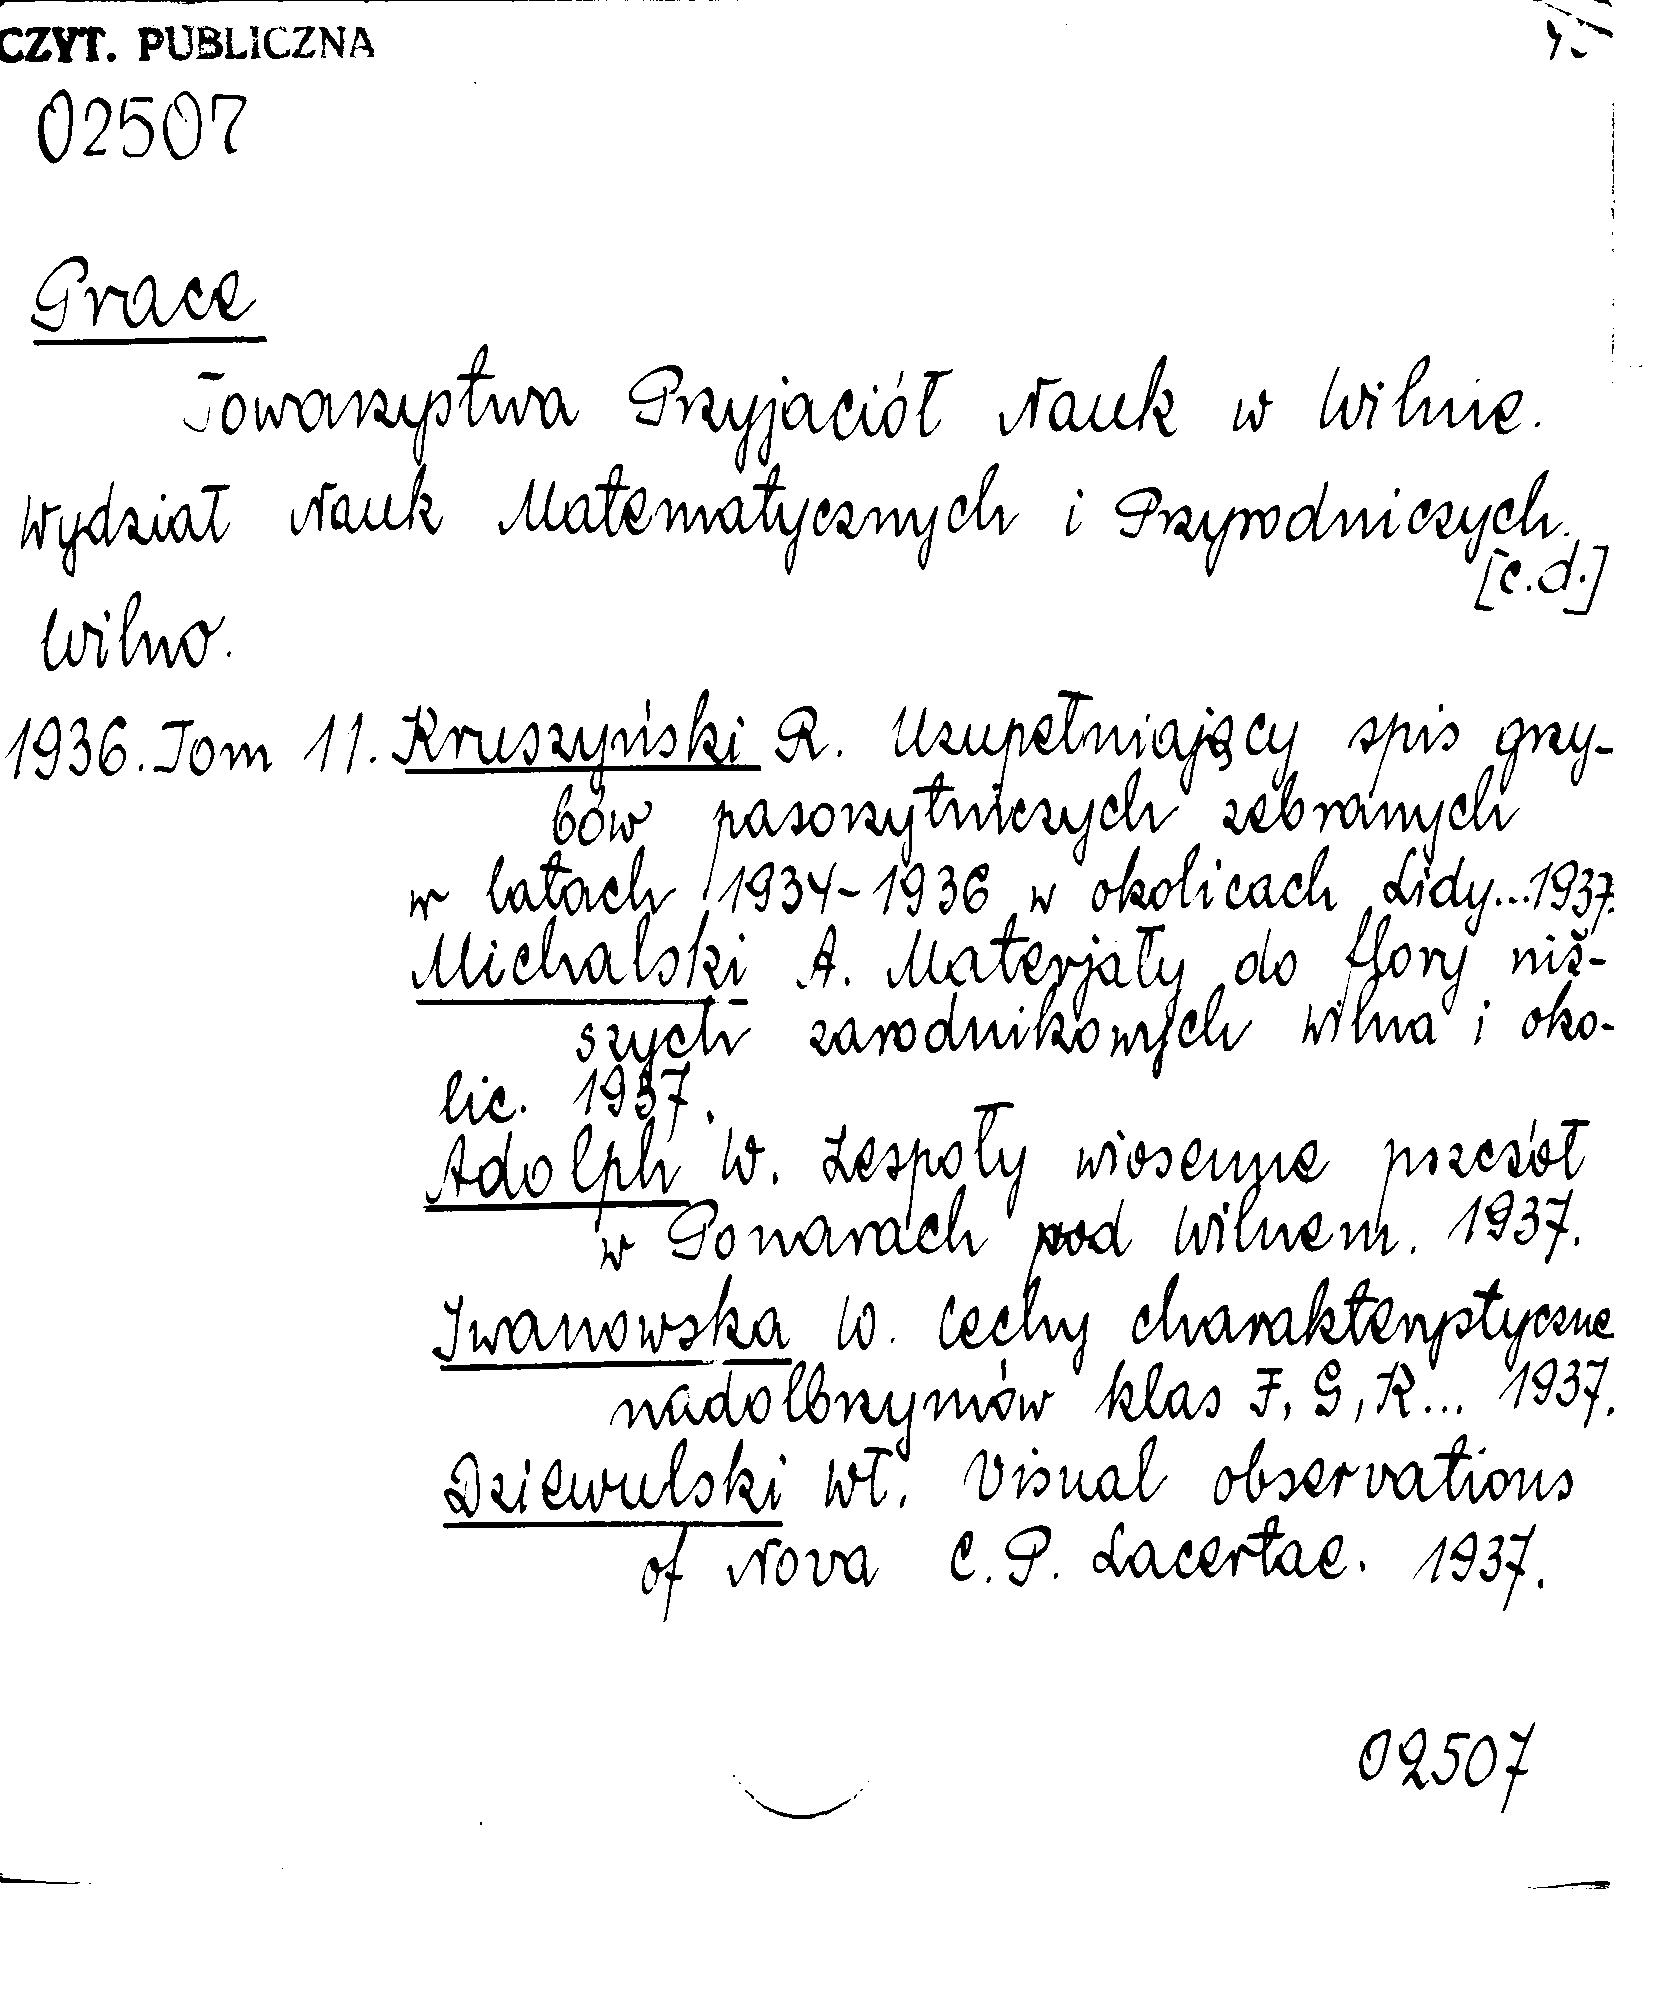 CZYT. PUBLICZNA
02507
Prace
Towarzystwa Przyjaciół Nauk w Wilnie.
Wydział Nauk Matematycznych i Przyrodniczych.
[c.d.]
Wilno.
1936. Tom 11. Kruszyński R. Uzupełniający spis grzy-
bów pasorzytniczych zebranych
w latach 1934-1936 w okolicach Lidy...1937.
Michalski A. Materjały do flory niż-
szych zarodnikowych Wilna i oko-
lic. 1937.
Adolph W. Zespoły wiosenne pszczół
w Ponarach pod Wilnem. 1937.
Iwanowska W. Cechy charakterystyczne
nadolbrzymów klas F, G, K... 1937.
Dziewulski Wł. Visual observations
of Nova C.P. Lacertae. 1937.
02507